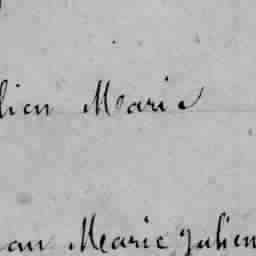 lien Marie
an Marie Julien